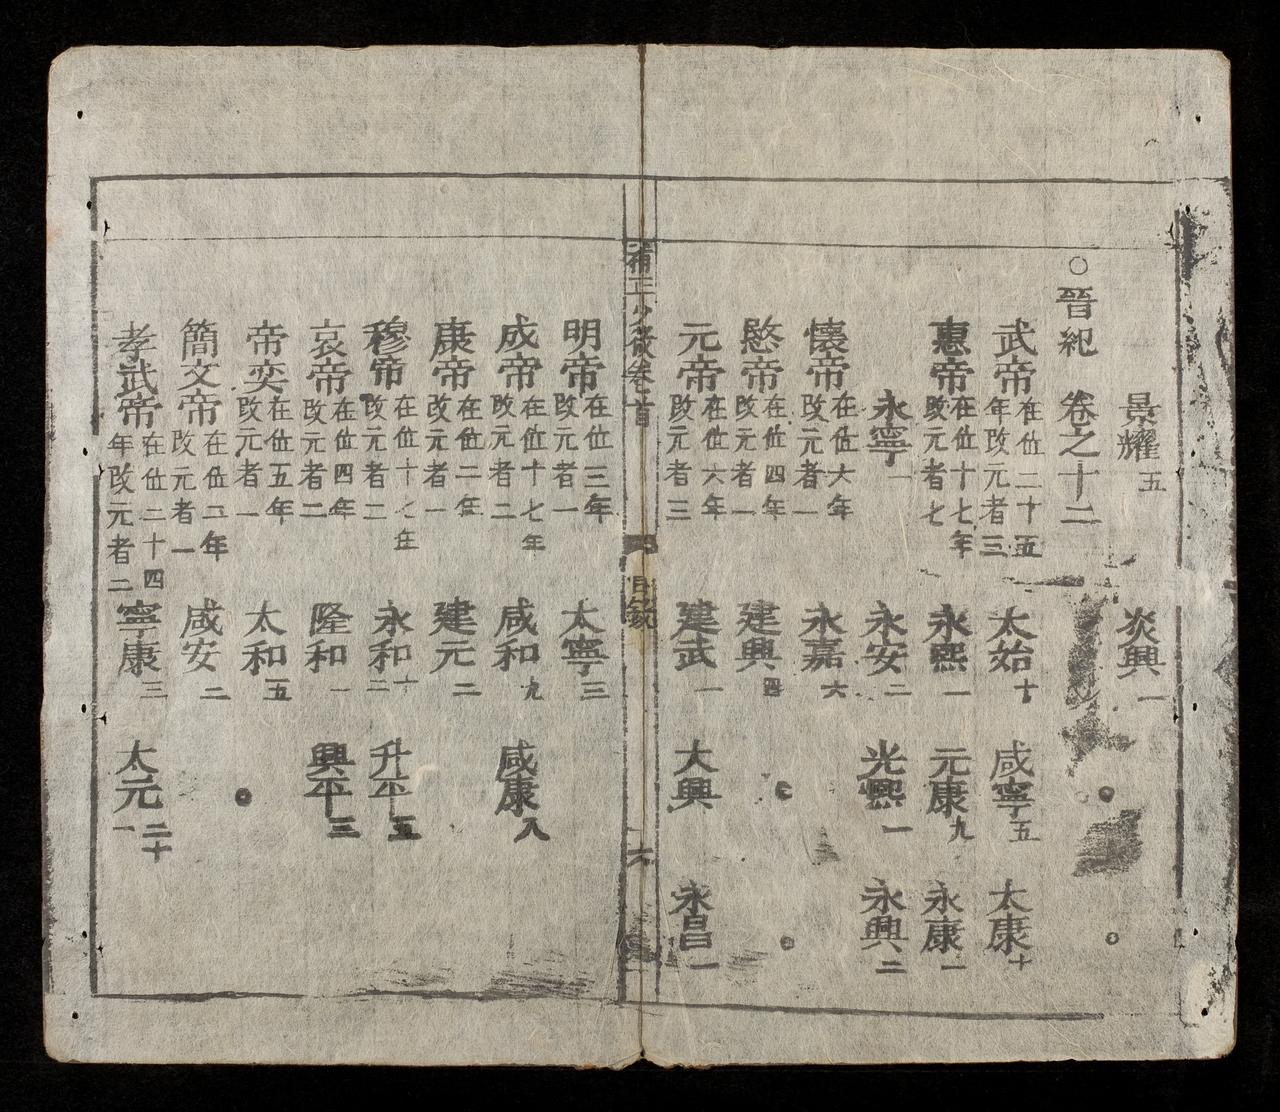 景耀五 炎興一
○晉紀 卷之十二
武帝在位二十五年改元者三 太始十 咸寧五 太康十
惠帝在位十七年改元者七 永熙一 元康九 永康一
永寧一 永安二 光熙一 永興二
懷帝在位六年改元者一 永嘉六
愍帝在位四年改元者一 建興四
元帝在位六年改元者三 建武一 大興 永昌一
補正少微卷首 目錄 六
明帝在位三年改元者一 太寧三
成帝在位十七年改元者二 咸和九 咸康八
康帝在位二年改元者一 建元二
穆帝在位十七年改元者二 永和十二 升平五
哀帝在位四年改元者二 隆和一 興平三
帝奕在位五年改元者一 太和五
簡文帝在位二年改元者一 咸安二
孝武帝在位二十四年改元者二 寧康三 太元二十一